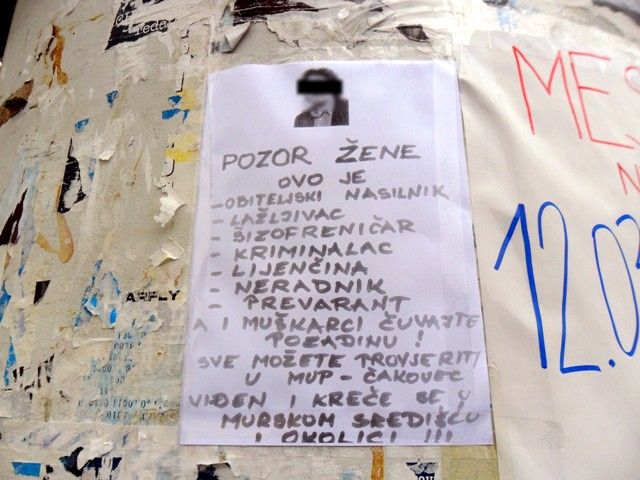 POZOR ŽENE
OVO JE
-OBITELJSKI NASILNIK
- LAŽLJIVAC
- ŠIZOFRENIČAR
- KRIMINALAC
- LIJENČINA
- NERADNIK
- PREVARANT
A I MUŠKARCI ČUVAJTE
POZADINU !
SVE MOŽETE PROVJERITI
U MUP - ČAKOVEC
VIĐEN I KREČE SE U
MURSKOM SREDIŠĆU
I OKOLICI !!!
MES
N
12.0